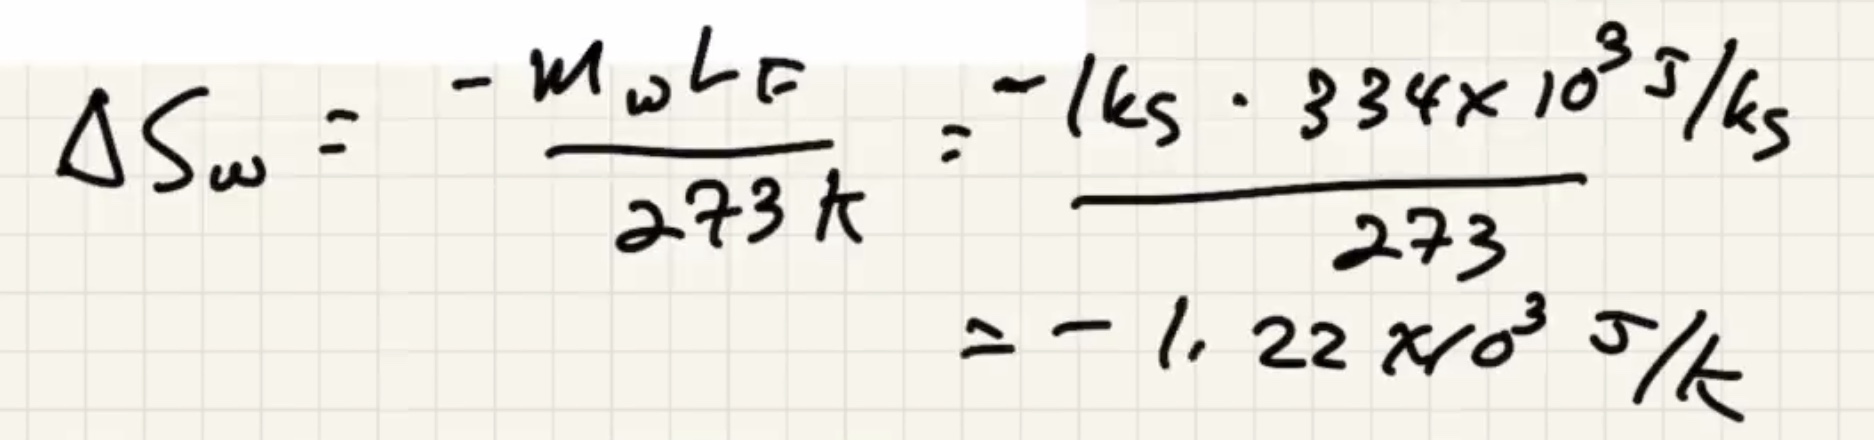 ΔS_w = -m_w L_F / 273 K = -1 kg · 334 × 10³ J/kg / 273
= -1.22 × 10³ J/K